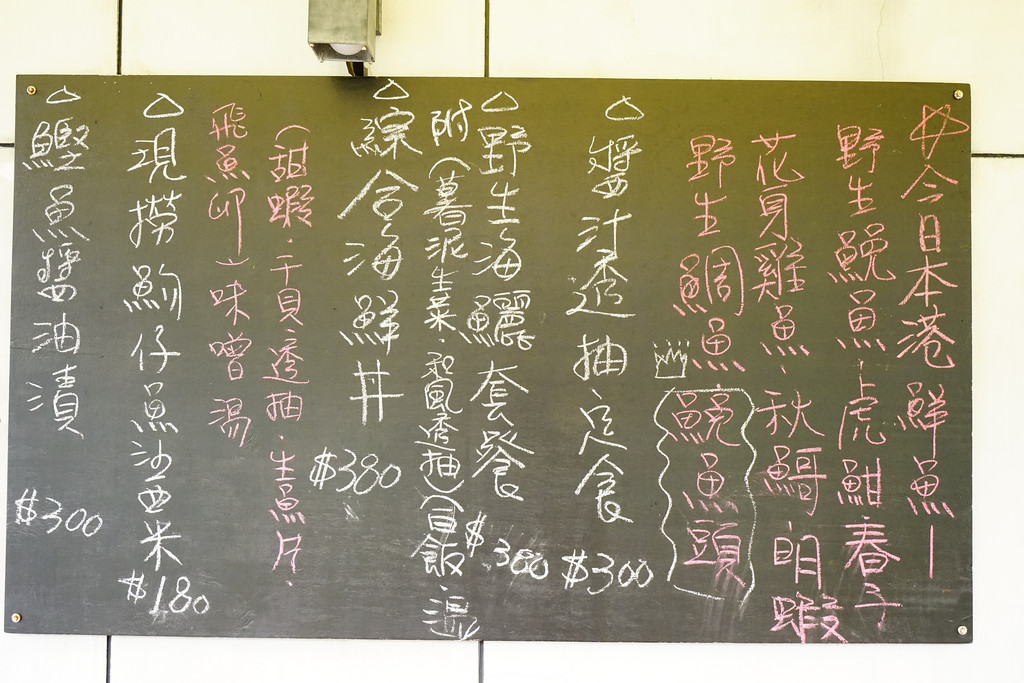 今日本港鮮魚—
野生鮸魚、虎魽、春子
花身雞魚、秋鯝、明蝦
野生鯛魚 鮸魚頭
△醬汁透抽定食 $300
△野生海鱺套餐 $380
附(薯泥生菜、和風透抽)(白飯、湯)
△綜合海鮮丼 $380
(甜蝦、干貝、透抽、生魚片、
飛魚卵)味噌湯
△現撈魩仔魚沙西米 $180
△鰹魚醬油漬 $300